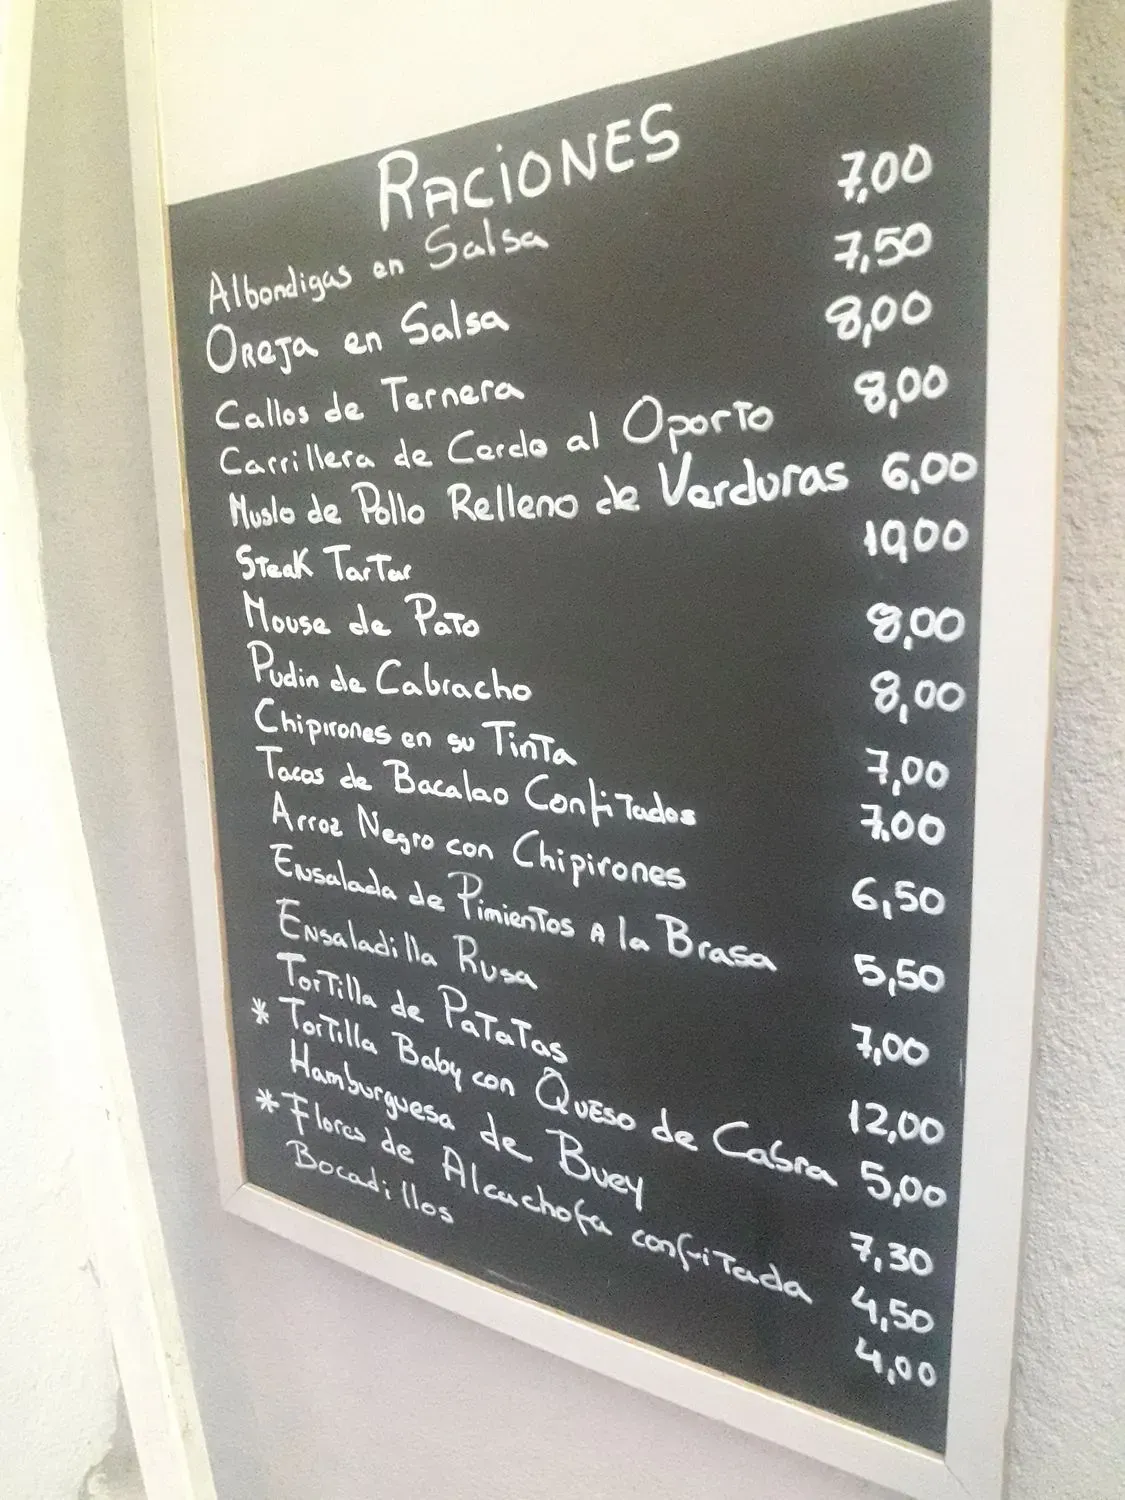 RACIONES
Albondigas en Salsa 7,00
Oreja en Salsa 7,50
Callos de Ternera 8,00
Carrillera de Cerdo al Oporto 8,00
Muslo de Pollo Relleno de Verduras 6,00
Steak Tartar 10,00
Mouse de Pato 8,00
Pudin de Cabracho 8,00
Chipirones en su Tinta 7,00
Tacos de Bacalao Confitados 7,00
Arroz Negro con Chipirones 6,50
Ensalada de Pimientos A la Brasa 5,50
Ensaladilla Rusa 7,00
Tortilla de Patatas 12,00
* Tortilla Baby con Queso de Cabra 5,00
Hamburguesa de Buey 7,30
* Flores de Alcachofa confitada 4,50
Bocadillos 4,00